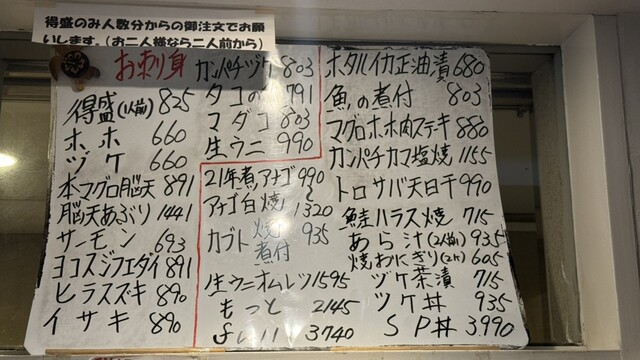 得盛のみ人数分からの御注文でお願
いします。(お二人様なら二人前から)
お刺身
得盛(1人前) 825
ホホ 660
ヅケ 660
本マグロ脳天 891
脳天あぶり 1441
サーモン 693
ヨコスジフエダイ 891
ヒラスズキ 890
イサキ 890
カンパチヅケ 803
タコの 791
マダコ 803
生ウニ 990
21年煮アナゴ 990
アナゴ白焼 1320
カブト 焼 935
煮付
生ウニオムレツ 1595
もっと 2145
3740
ホタルイカ正油漬 680
魚の煮付 803
マグロホホ肉ステーキ 880
カンパチカマ塩焼 1155
トロサバ天日干 990
鮭ハラス焼 715
あら汁(2人前) 935
焼おにぎり(2ケ) 605
ヅケ茶漬 715
ヅケ丼 935
SP丼 3990